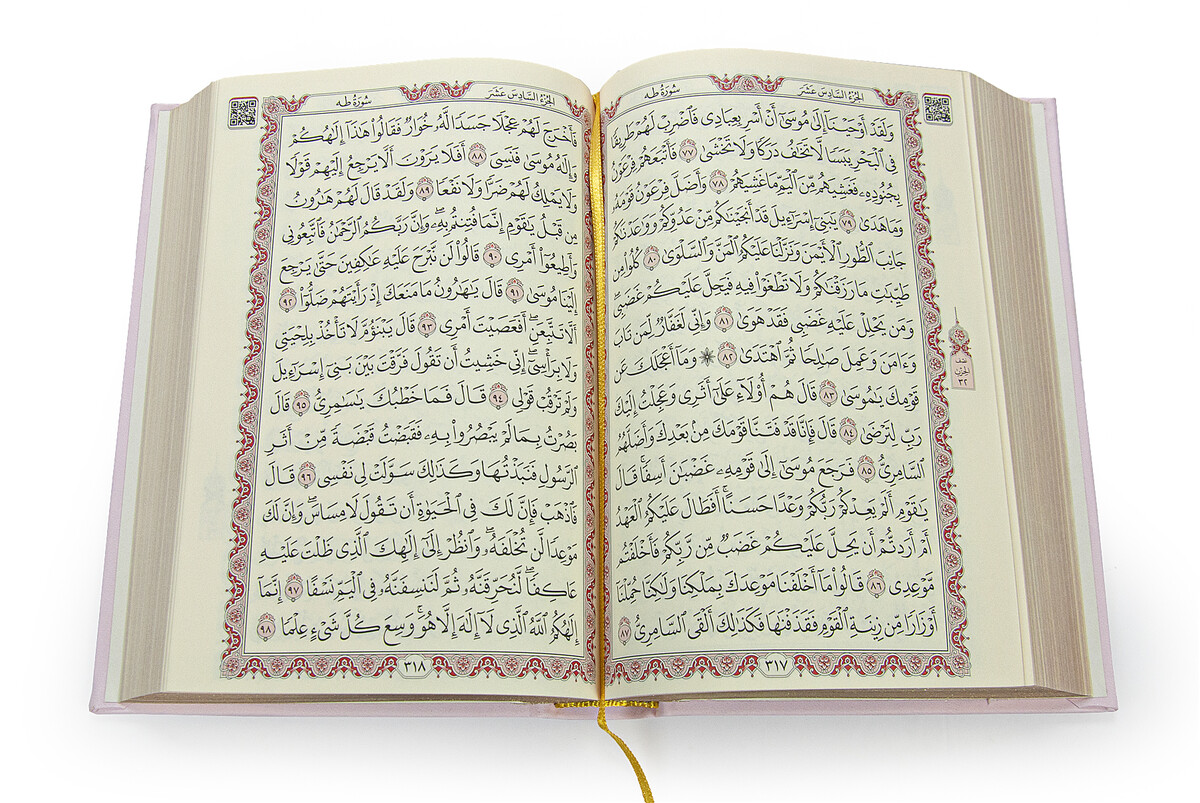 الجُزءُ السَّادِسَ عَشَرَ
سُورَةُ طه
وَلَقَدۡ أَوۡحَيۡنَآ إِلَىٰ مُوسَىٰٓ أَنۡ أَسۡرِ بِعِبَادِي فَٱضۡرِبۡ لَهُمۡ طَرِيقٗا
فِي ٱلۡبَحۡرِ يَبَسٗا لَّا تَخَٰفُ دَرَكٗا وَلَا تَخۡشَىٰ ٧٧ فَأَتۡبَعَهُمۡ فِرۡعَوۡنُ
بِجُنُودِهِۦ فَغَشِيَهُم مِّنَ ٱلۡيَمِّ مَا غَشِيَهُمۡ ٧٨ وَأَضَلَّ فِرۡعَوۡنُ قَوۡمَهُۥ
وَمَا هَدَىٰ ٧٩ يَٰبَنِيٓ إِسۡرَٰٓءِيلَ قَدۡ أَنجَيۡنَٰكُم مِّنۡ عَدُوِّكُمۡ وَوَٰعَدۡنَٰكُمۡ
جَانِبَ ٱلطُّورِ ٱلۡأَيۡمَنَ وَنَزَّلۡنَا عَلَيۡكُمُ ٱلۡمَنَّ وَٱلسَّلۡوَىٰ ٨٠ كُلُواْ مِن
طَيِّبَٰتِ مَا رَزَقۡنَٰكُمۡ وَلَا تَطۡغَوۡاْ فِيهِ فَيَحِلَّ عَلَيۡكُمۡ غَضَبِيۖ
وَمَن يَحۡلِلۡ عَلَيۡهِ غَضَبِي فَقَدۡ هَوَىٰ ٨١ وَإِنِّي لَغَفَّارٞ لِّمَن تَابَ
وَءَامَنَ وَعَمِلَ صَٰلِحٗا ثُمَّ ٱهۡتَدَىٰ ٨٢ ۞ وَمَآ أَعۡجَلَكَ عَن
قَوۡمِكَ يَٰمُوسَىٰ ٨٣ قَالَ هُمۡ أُوْلَآءِ عَلَىٰٓ أَثَرِي وَعَجِلۡتُ إِلَيۡكَ
رَبِّ لِتَرۡضَىٰ ٨٤ قَالَ فَإِنَّا قَدۡ فَتَنَّا قَوۡمَكَ مِنۢ بَعۡدِكَ وَأَضَلَّهُمُ
ٱلسَّامِرِيُّ ٨٥ فَرَجَعَ مُوسَىٰٓ إِلَىٰ قَوۡمِهِۦ غَضۡبَٰنَ أَسِفٗاۚ قَالَ
يَٰقَوۡمِ أَلَمۡ يَعِدۡكُمۡ رَبُّكُمۡ وَعۡدًا حَسَنًاۚ أَفَطَالَ عَلَيۡكُمُ ٱلۡعَهۡدُ
أَمۡ أَرَدتُّمۡ أَن يَحِلَّ عَلَيۡكُمۡ غَضَبٞ مِّن رَّبِّكُمۡ فَأَخۡلَفۡتُم
مَّوۡعِدِي ٨٦ قَالُواْ مَآ أَخۡلَفۡنَا مَوۡعِدَكَ بِمَلۡكِنَا وَلَٰكِنَّا حُمِّلۡنَآ
أَوۡزَارٗا مِّن زِينَةِ ٱلۡقَوۡمِ فَقَذَفۡنَٰهَا فَكَذَٰلِكَ أَلۡقَى ٱلسَّامِرِيُّ ٨٧
٣١٧
نصف
الحِزب
٣٢
الجُزءُ السَّادِسَ عَشَرَ
سُورَةُ طه
فَأَخۡرَجَ لَهُمۡ عِجۡلٗا جَسَدٗا لَّهُۥ خُوَارٞ فَقَالُواْ هَٰذَآ إِلَٰهُكُمۡ
وَإِلَٰهُ مُوسَىٰ فَنَسِيَ ٨٨ أَفَلَا يَرَوۡنَ أَلَّا يَرۡجِعُ إِلَيۡهِمۡ قَوۡلٗا
وَلَا يَمۡلِكُ لَهُمۡ ضَرّٗا وَلَا نَفۡعٗا ٨٩ وَلَقَدۡ قَالَ لَهُمۡ هَٰرُونُ
مِن قَبۡلُ يَٰقَوۡمِ إِنَّمَا فُتِنتُم بِهِۦۖ وَإِنَّ رَبَّكُمُ ٱلرَّحۡمَٰنُ فَٱتَّبِعُونِي
وَأَطِيعُوٓاْ أَمۡرِي ٩٠ قَالُواْ لَن نَّبۡرَحَ عَلَيۡهِ عَٰكِفِينَ حَتَّىٰ يَرۡجِعَ
إِلَيۡنَا مُوسَىٰ ٩١ قَالَ يَٰهَٰرُونُ مَا مَنَعَكَ إِذۡ رَأَيۡتَهُمۡ ضَلُّوٓاْ ٩٢
أَلَّا تَتَّبِعَنِۖ أَفَعَصَيۡتَ أَمۡرِي ٩٣ قَالَ يَبۡنَؤُمَّ لَا تَأۡخُذۡ بِلِحۡيَتِي
وَلَا بِرَأۡسِيٓۖ إِنِّي خَشِيتُ أَن تَقُولَ فَرَّقۡتَ بَيۡنَ بَنِيٓ إِسۡرَٰٓءِيلَ
وَلَمۡ تَرۡقُبۡ قَوۡلِي ٩٤ قَالَ فَمَا خَطۡبُكَ يَٰسَٰمِرِيُّ ٩٥ قَالَ
بَصُرۡتُ بِمَا لَمۡ يَبۡصُرُواْ بِهِۦ فَقَبَضۡتُ قَبۡضَةٗ مِّنۡ أَثَرِ
ٱلرَّسُولِ فَنَبَذۡتُهَا وَكَذَٰلِكَ سَوَّلَتۡ لِي نَفۡسِي ٩٦ قَالَ
فَٱذۡهَبۡ فَإِنَّ لَكَ فِي ٱلۡحَيَوٰةِ أَن تَقُولَ لَا مِسَاسَۖ وَإِنَّ لَكَ
مَوۡعِدٗا لَّن تُخۡلَفَهُۥۖ وَٱنظُرۡ إِلَىٰٓ إِلَٰهِكَ ٱلَّذِي ظَلۡتَ عَلَيۡهِ
عَاكِفٗاۖ لَّنُحَرِّقَنَّهُۥ ثُمَّ لَنَنسِفَنَّهُۥ فِي ٱلۡيَمِّ نَسۡفًا ٩٧ إِنَّمَآ
إِلَٰهُكُمُ ٱللَّهُ ٱلَّذِي لَآ إِلَٰهَ إِلَّا هُوَۚ وَسِعَ كُلَّ شَيۡءٍ عِلۡمٗا ٩٨
٣١٨